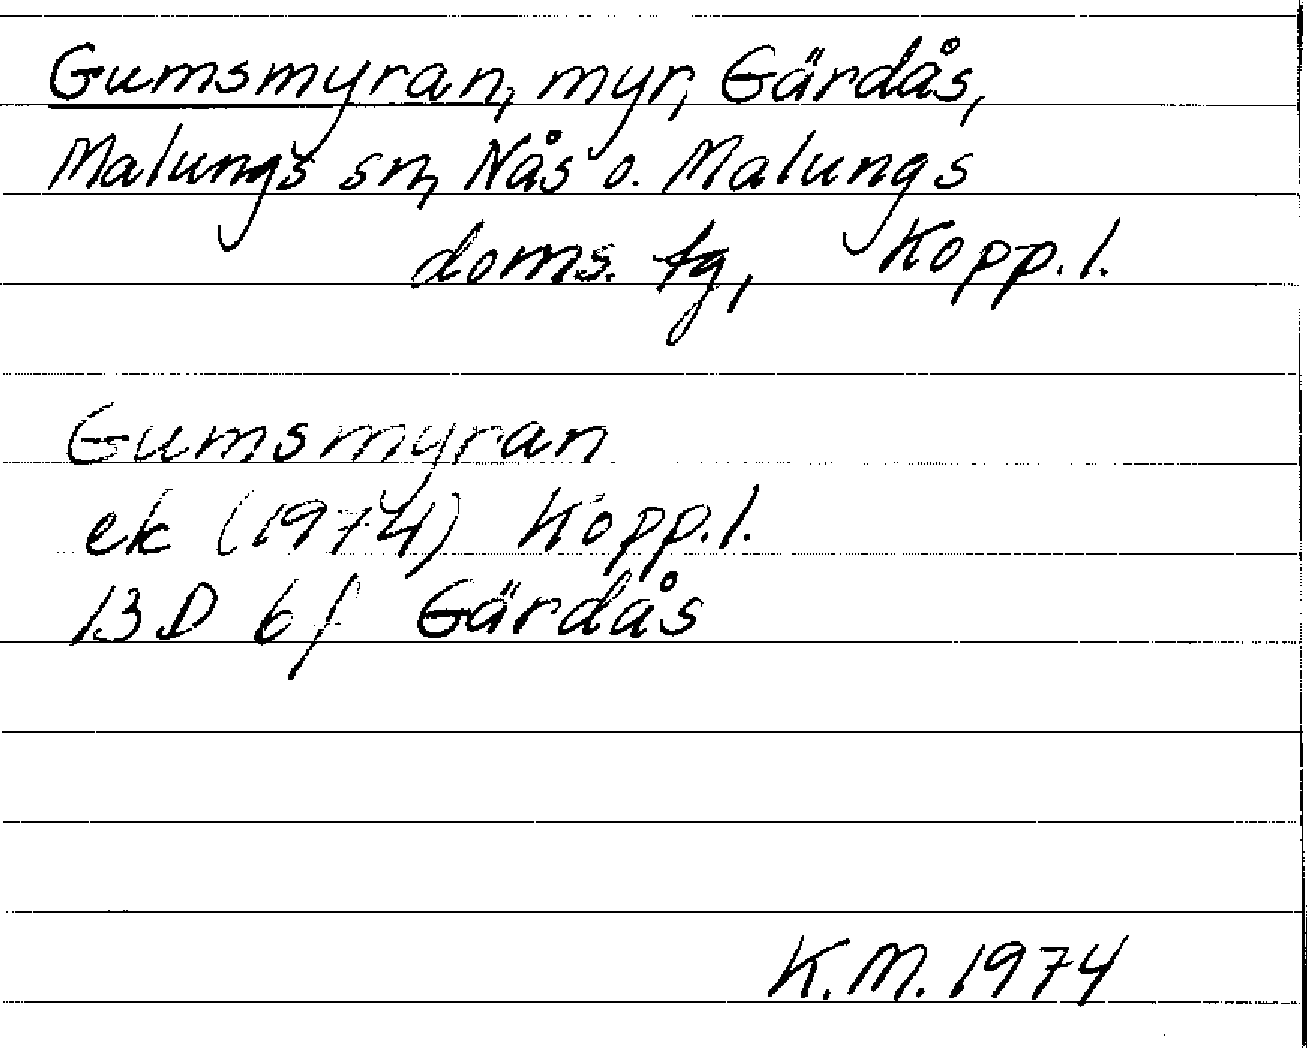 Gumsmyran, myr, Gärdås,
Malungs sn, Nås o. Malungs
doms. tg, Kopp.l.
Gumsmyran
ek (1974) Kopp.l.
13D 6f Gärdås
K.M. 1974